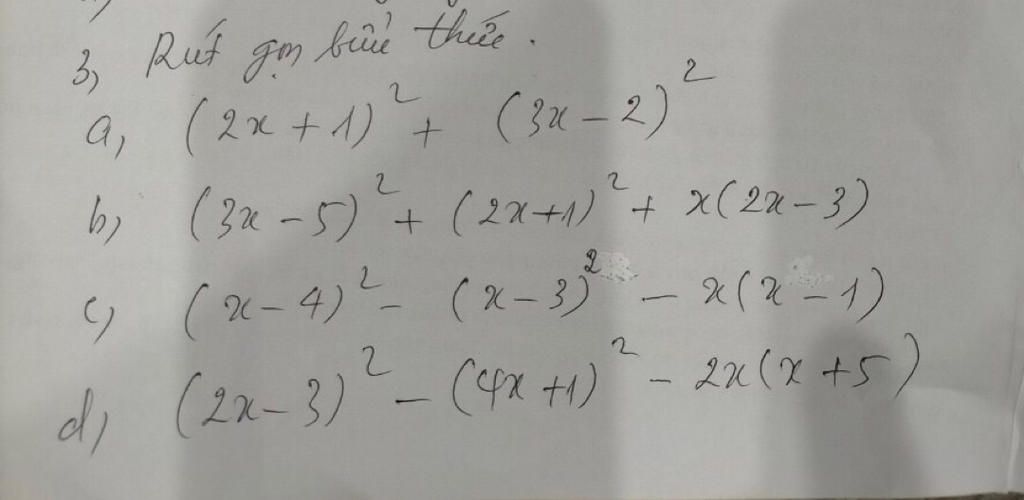 3, Rút gọn biểu thức.
a, (2x + 1)² + (3x - 2)²
b, (3x - 5)² + (2x+1)² + x(2x - 3)
c, (x - 4)² - (x - 3)² - x(x - 1)
d, (2x - 3)² - (4x +1)² - 2x(x +5)